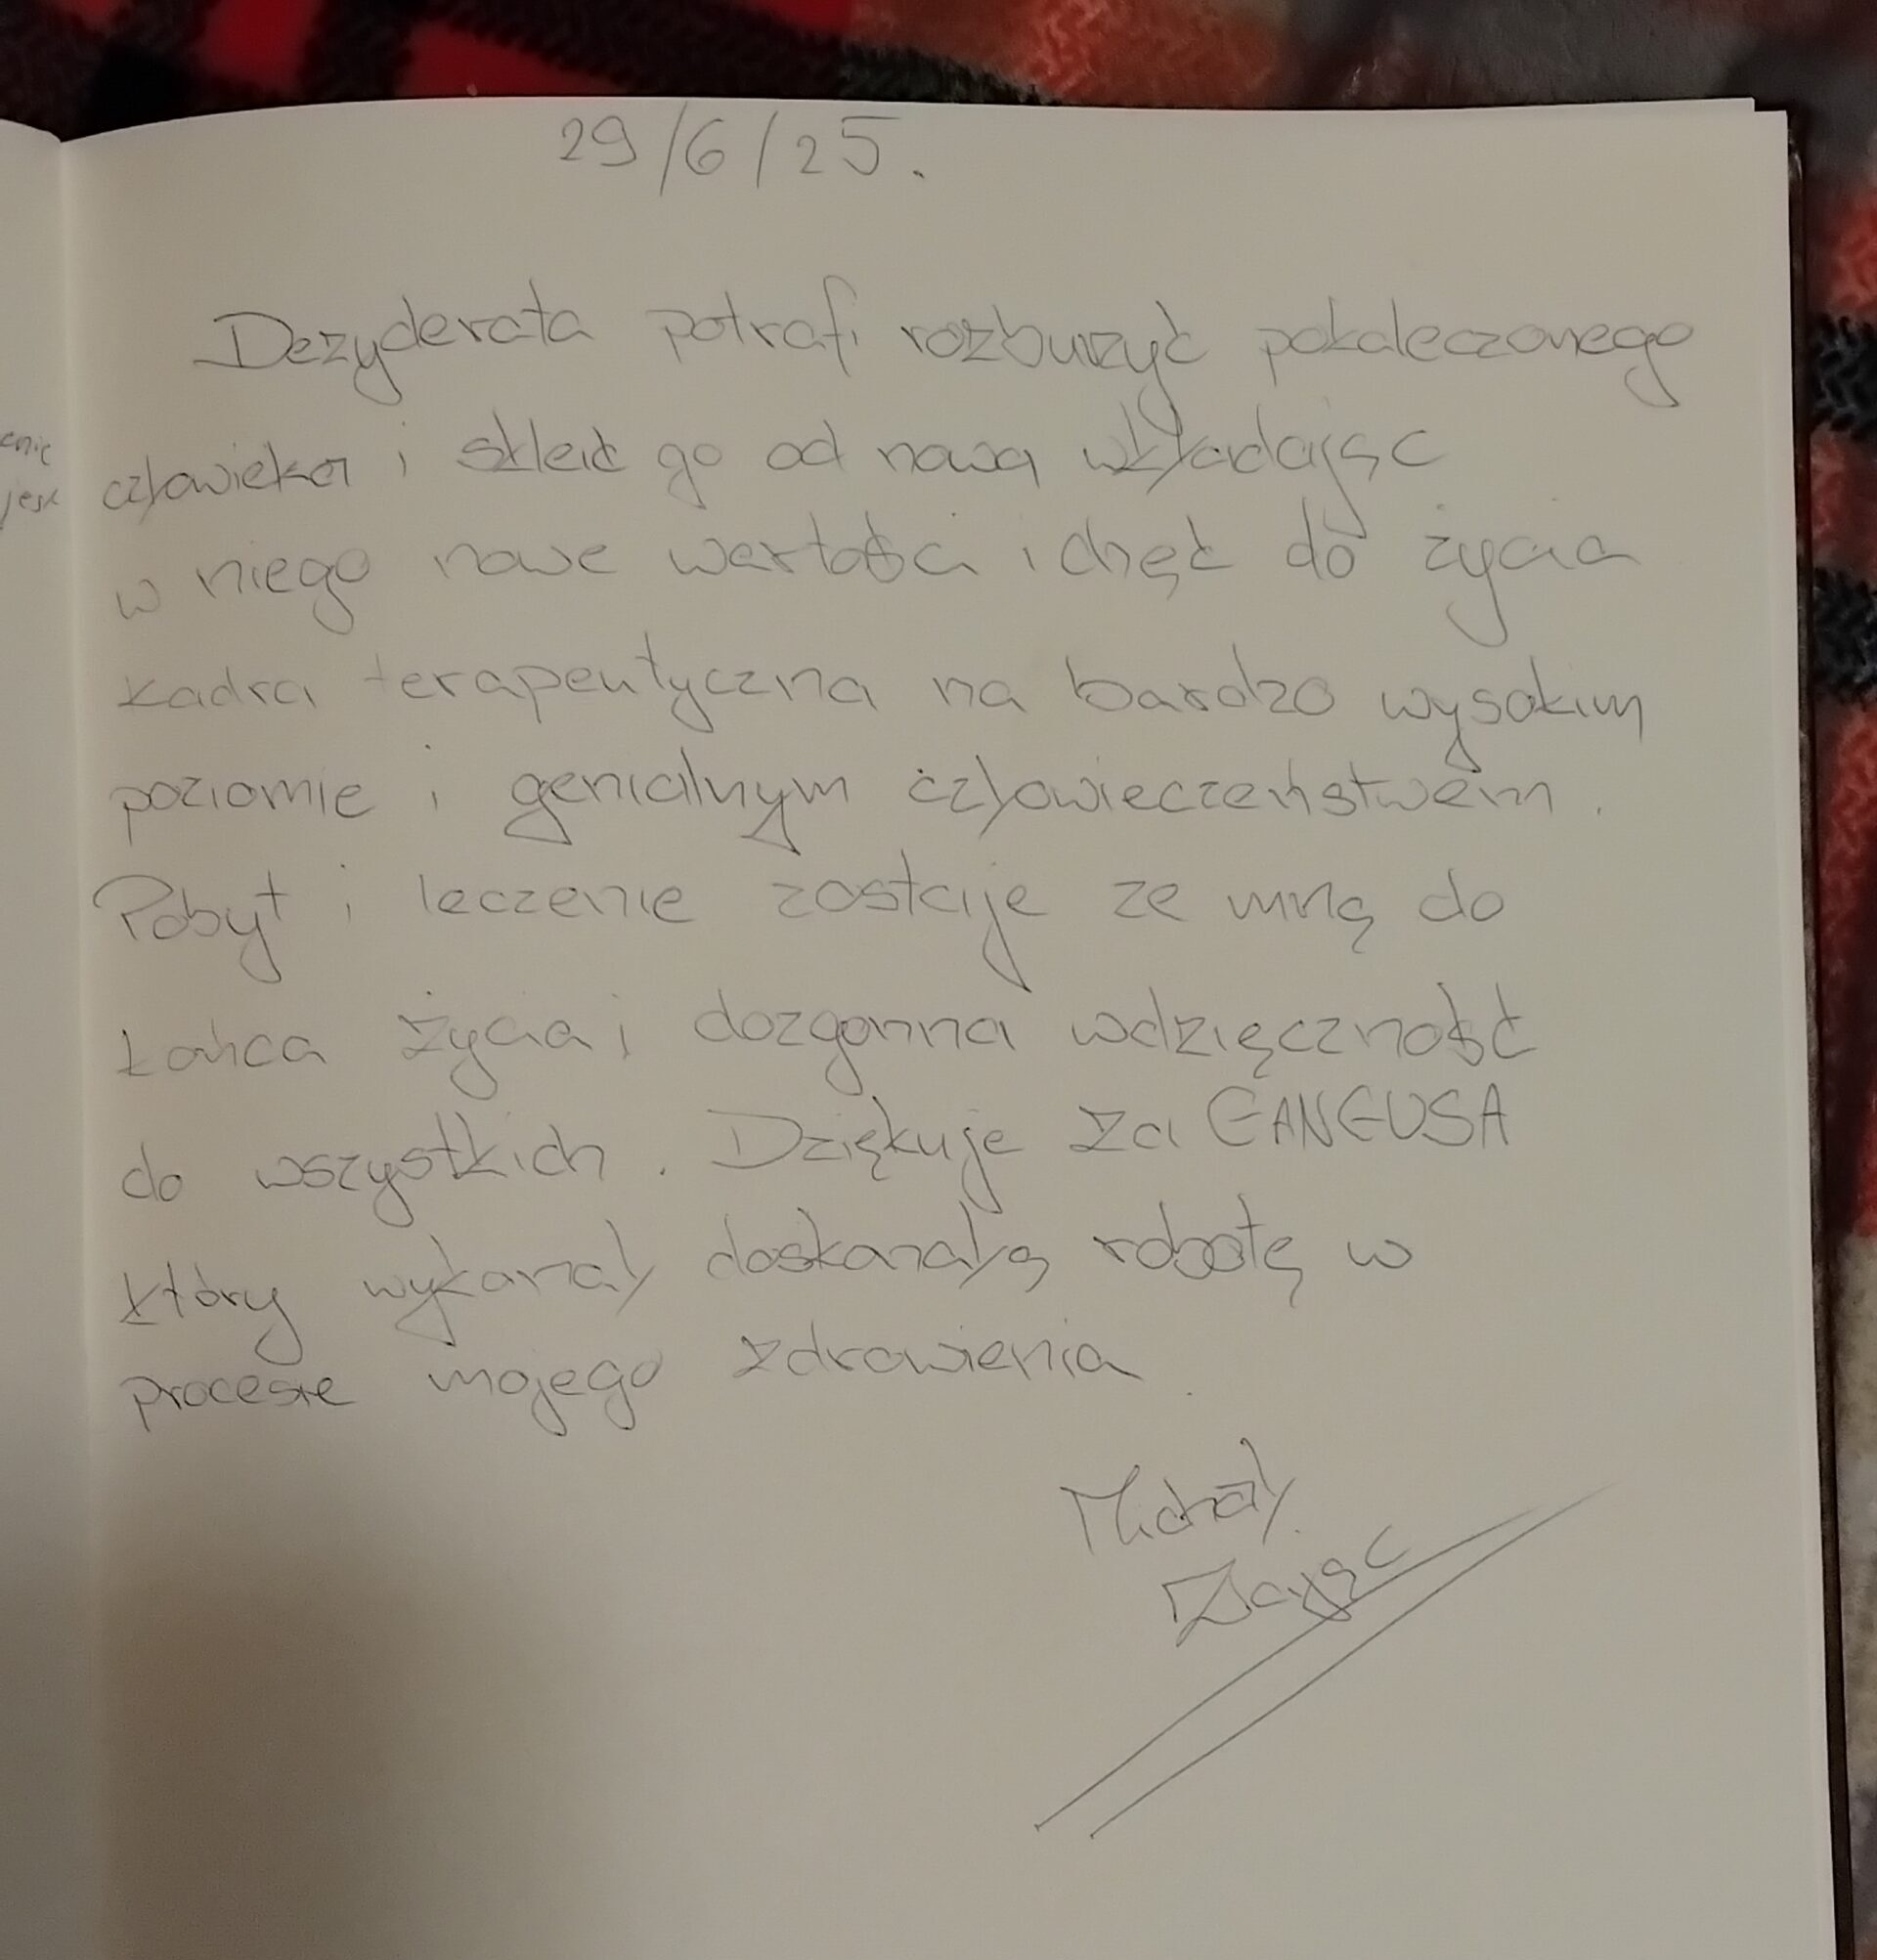 29/6/25.
Dezyderata potrafi rozburzyć pokaleczonego
człowieka i skleić go od nowa wkładając
w niego nowe wartości i chęć do życia
kadra terapeutyczna na bardzo wysokim
poziomie i genialnym człowieczeństwem.
Pobyt i leczenie zostaje ze mną do
końca życia i dozgonna wdzięczność
do wszystkich. Dziękuje za GANGUSA
który wykonał doskonałą robotę w
procesie mojego zdrowienia.
Michał
Zając